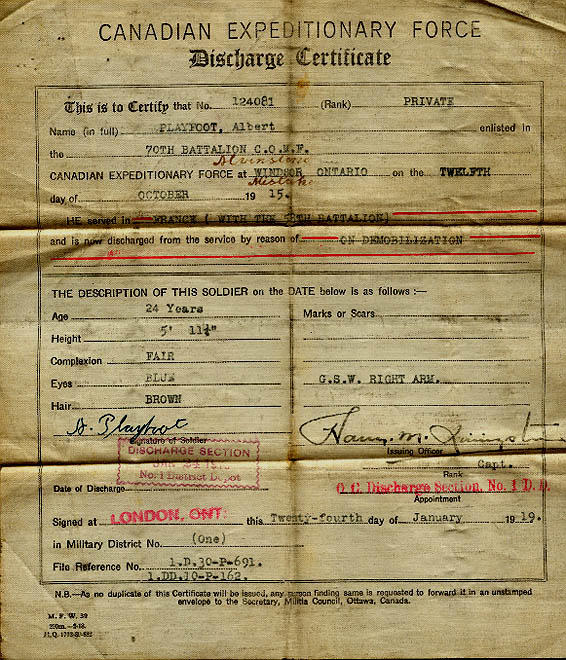 CANADIAN EXPEDITIONARY FORCE
Discharge Certificate
This is to Certify that No. 124081 (Rank) PRIVATE
Name (in full) PLAYFOOT, Albert enlisted in
the 70TH BATTALION C.O.M.F.
Alvinston
CANADIAN EXPEDITIONARY FORCE at WINDSOR ONTARIO on the TWELFTH
Mistake
day of OCTOBER 19 15.
HE served in FRANCE ( WITH THE BATTALION)
and is now discharged from the service by reason of ON DEMOBILIZATION
THE DESCRIPTION OF THIS SOLDIER on the DATE below is as follows :—
Age 24 Years Marks or Scars
Height 5' 11¾"
Complexion FAIR
Eyes BLUE G.S.W. RIGHT ARM.
Hair BROWN
A. Playfoot Harry M. Livingston
Signature of Soldier Issuing Officer
DISCHARGE SECTION
Capt.
No. 1 District Depot
Rank
Date of Discharge O.C. Discharge Section, No. 1 D. D.
Appointment
Signed at LONDON, ONT. this Twenty-fourth day of January 19 19.
in Military District No. (One)
File Reference No. 1.D.30-P-691.
1.DD.10-P-162.
N.B.—As no duplicate of this Certificate will be issued, any person finding same is requested to forward it in an unstamped
envelope to the Secretary, Militia Council, Ottawa, Canada.
M. F. W. 39
H.Q. 1772-39-882